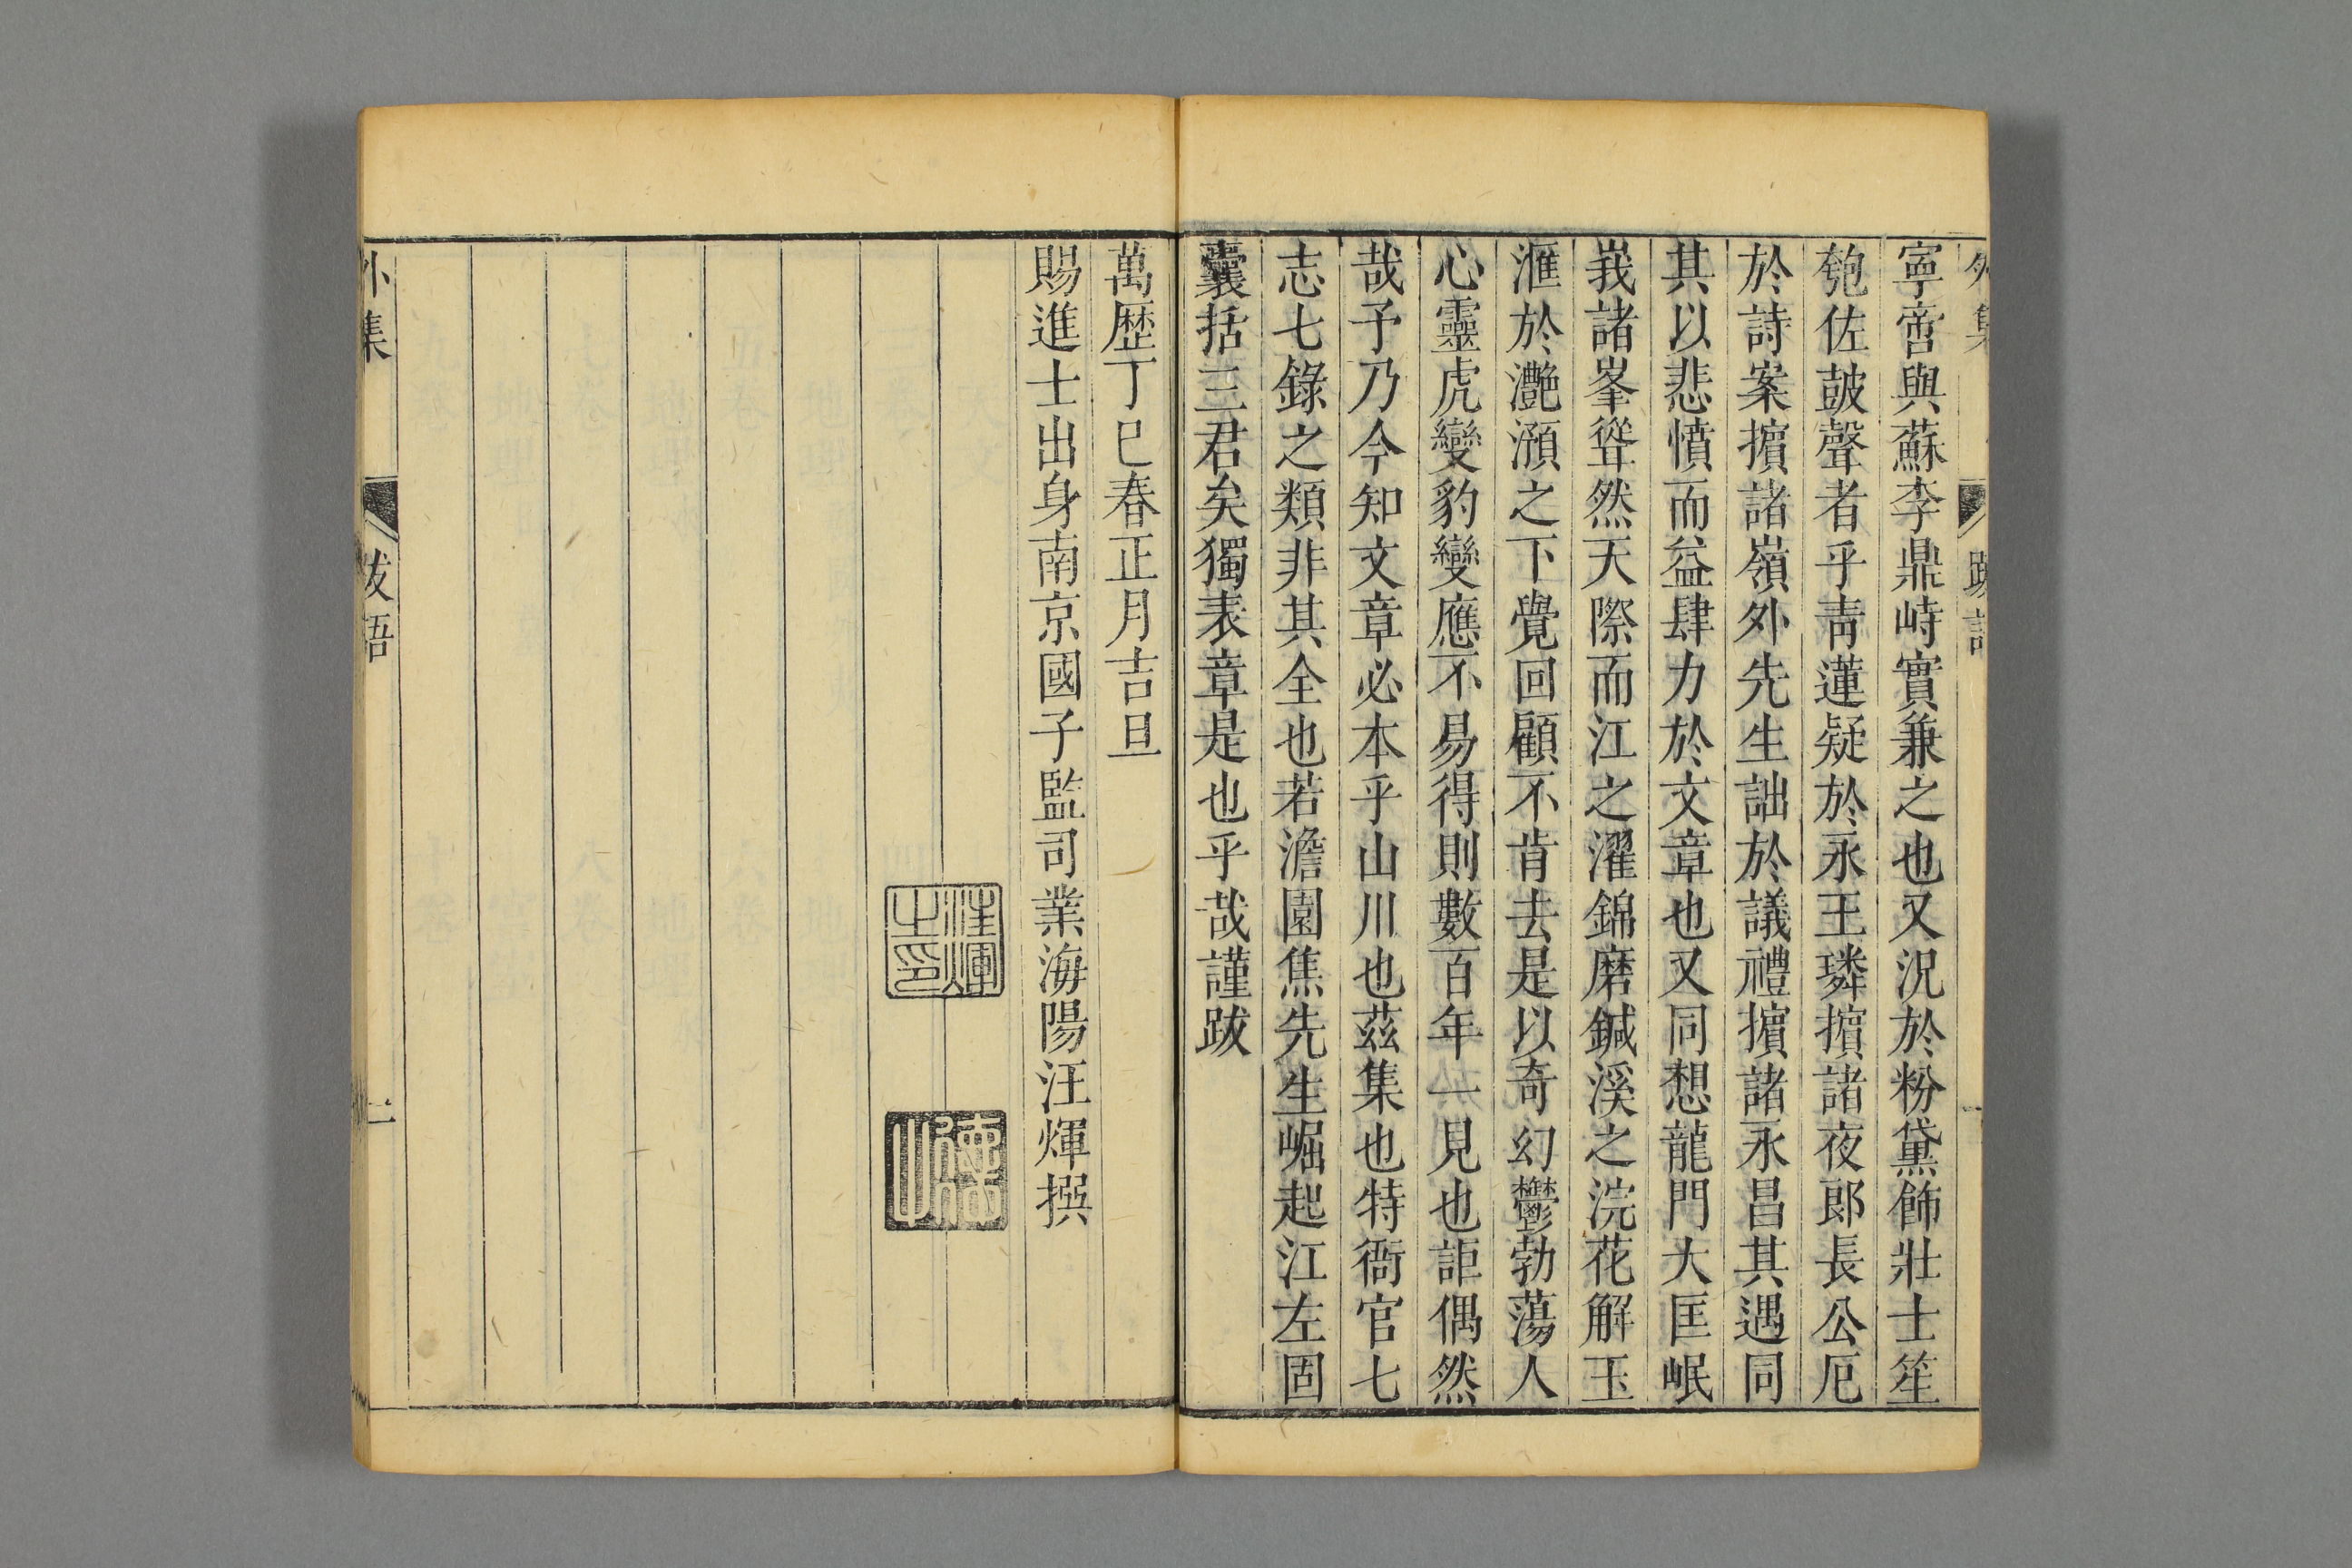 寧啻與蘇李鼎峙實兼之也又況於粉黛飾壯士笙
匏佐皷聲者乎青蓮疑於永王璘擯諸夜郎長公厄
於詩案擯諸嶺外先生詘於議禮擯諸永昌其遇同
其以悲憤而益肆力於文章也又同想龍門大匡岷
峩諸峯聳然天際而江之濯錦磨鍼溪之浣花解玉
滙於灔澦之下覺回顧不肯去是以奇幻鬱勃蕩人
心靈虎變豹變應不易得則數百年一見也詎偶然
哉予乃今知文章必本乎山川也茲集也特衙官七
志七錄之類非其全也若澹園焦先生崛起江左固
囊括三君矣獨表章是也乎哉謹跋
萬歴丁巳春正月吉旦
賜進士出身南京國子監司業海陽汪煇撰
汪煇之印
外集
跋語
二